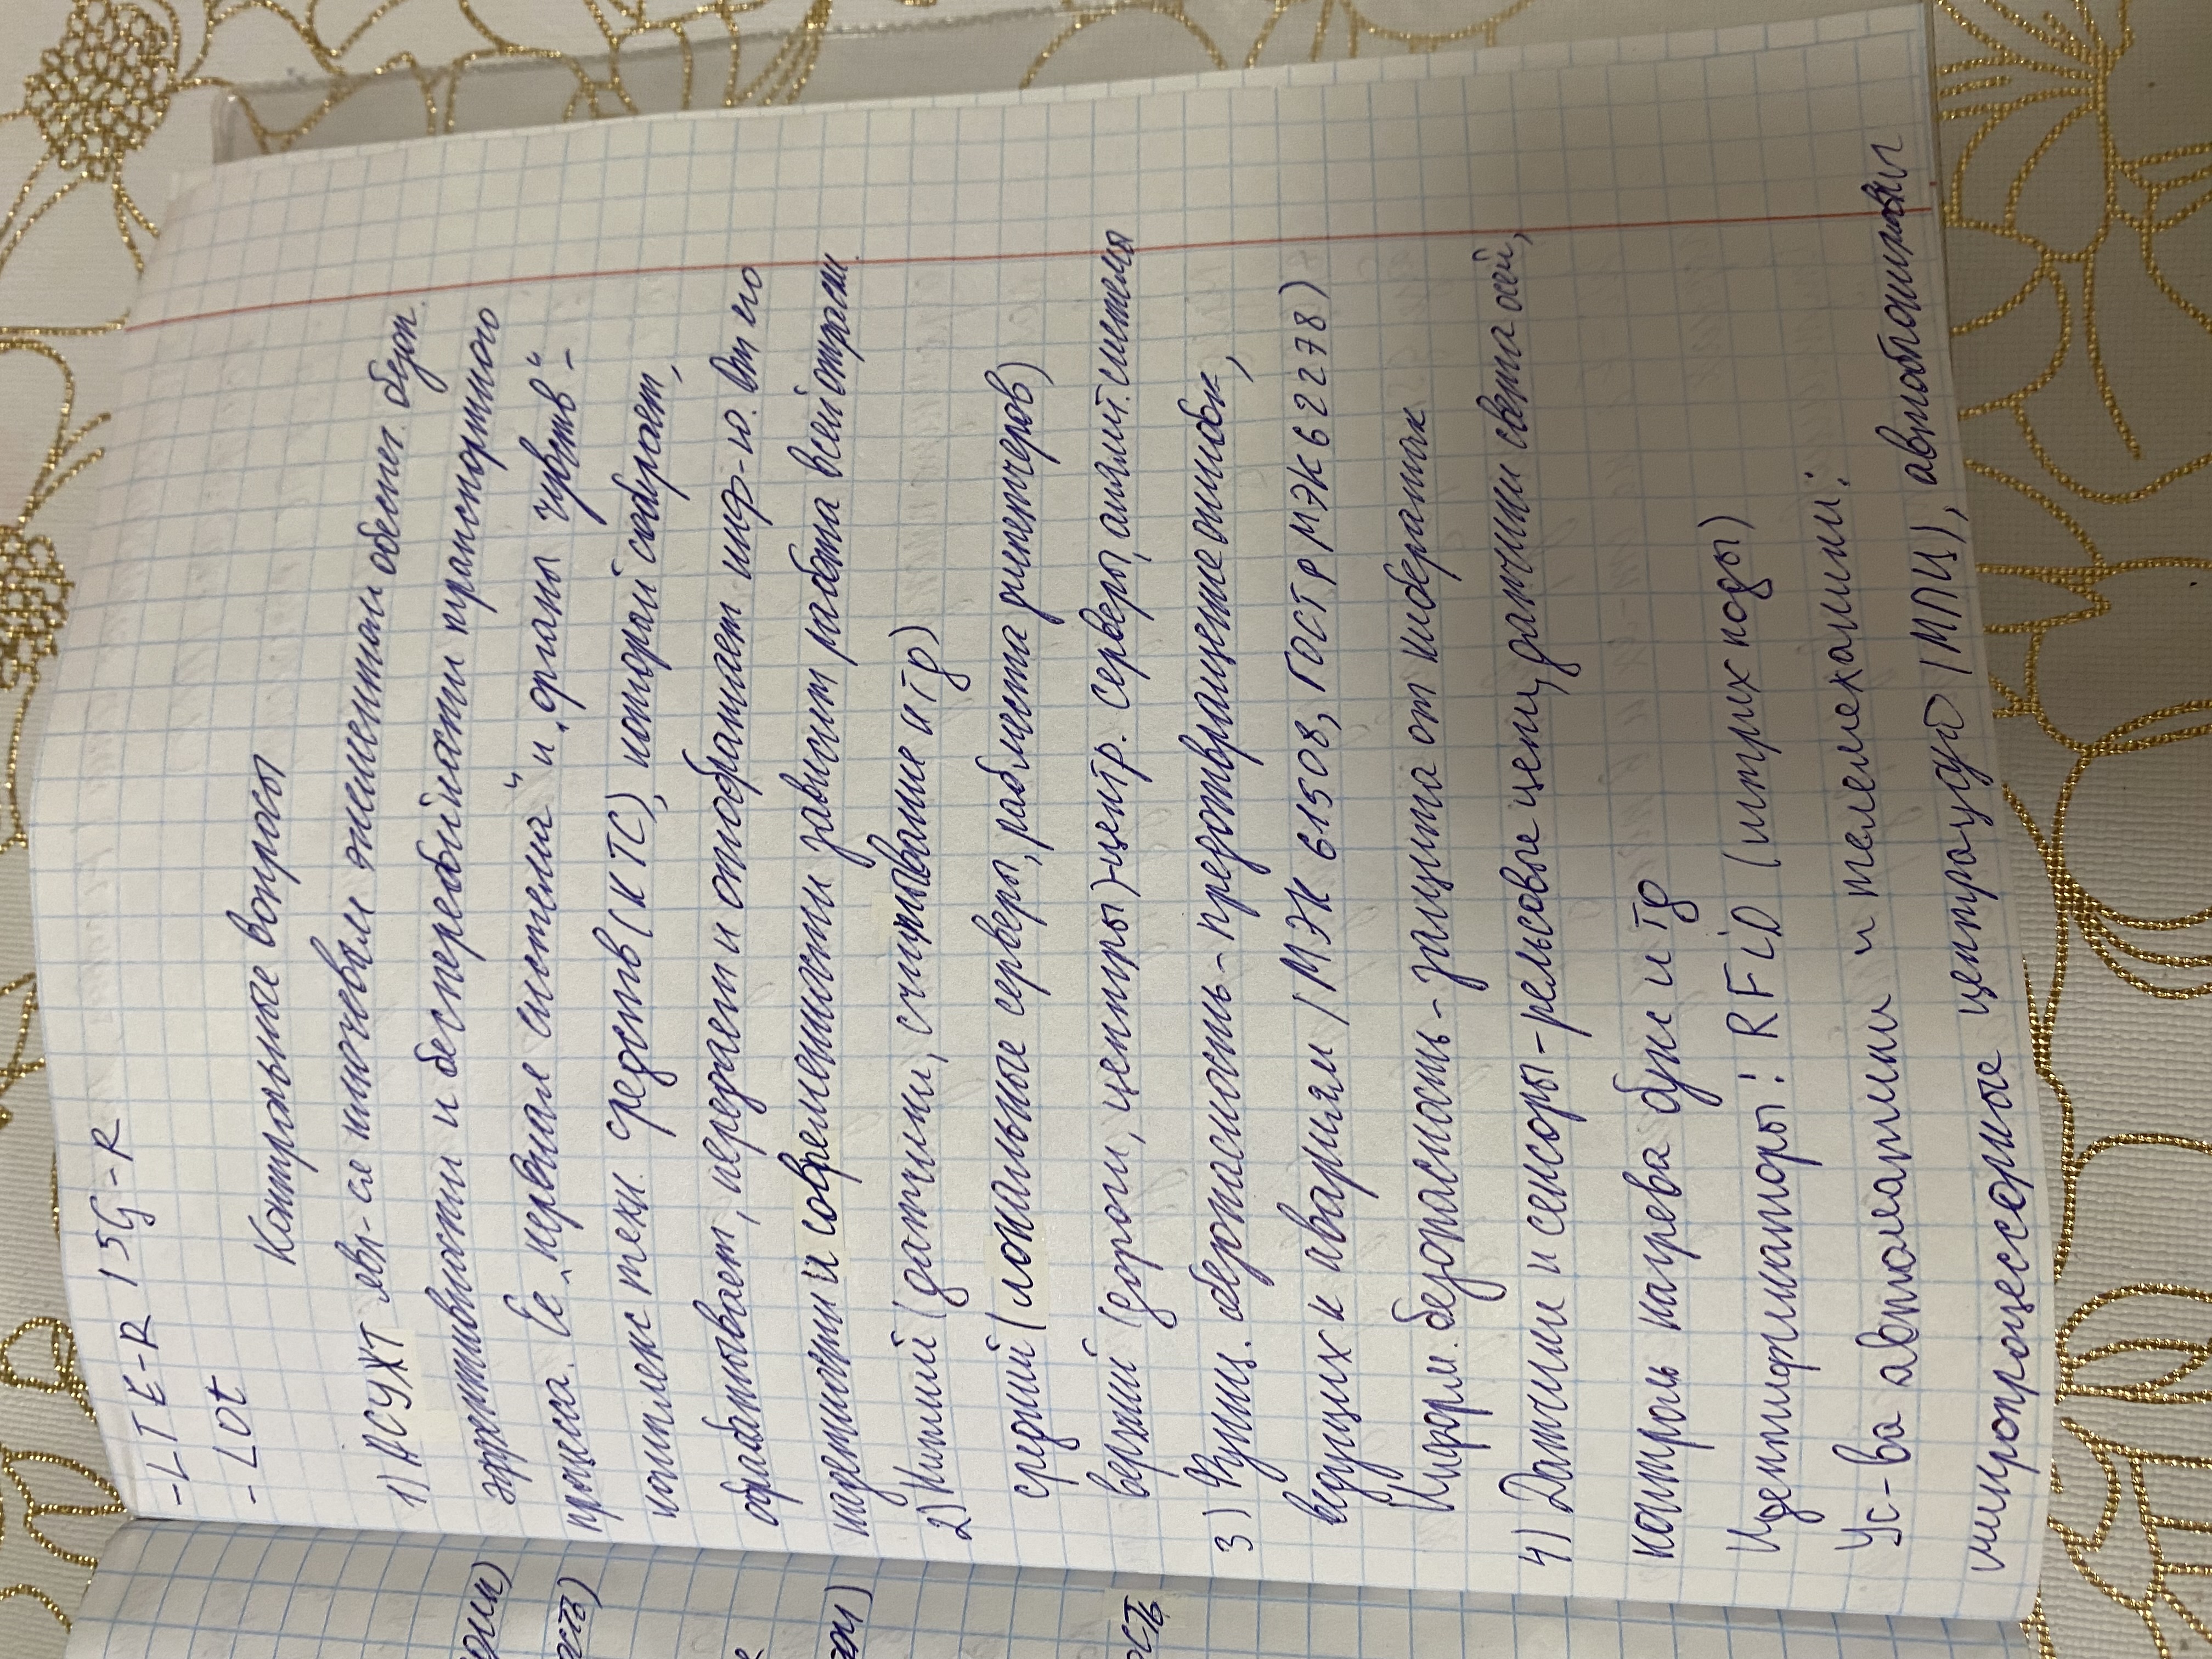 - LTE-R 15G-R
- Lot
Контрольные вопросы
1) АСУЖТ явл-ся ключевым элементом обеспеч. безоп.
эффективности и бесперебойности транспортного
процесса. Ее „нервная система" и „органы чувств" -
комплекс техн. средств (КТС), который собирает,
обрабатывает, передает и отображает инф-ю. От его
надежности и современности зависит работа всей отрасли.
2) Нижний (датчики, считывание и тд)
средний (локальные серверы, рабместа диспетчеров)
верхний (дороги, центры) - центр. серверы, аналит. система
3) Функц. безопасность - предотвращение ошибок,
ведущих к авариям (МЭК 61508, ГОСТ Р МЭК 62278)
Информ. безопасность - защита от кибератак
4) Датчики и сенсоры - рельсовые цепи, датчики счета осей,
контроль нагрева букс и тд
Идентификаторы: RFiD (штрих коды)
Ус-ва автоматики и телемеханики:
микропроцессорные централизац (МПЦ), автоблокировки
ости)
ость